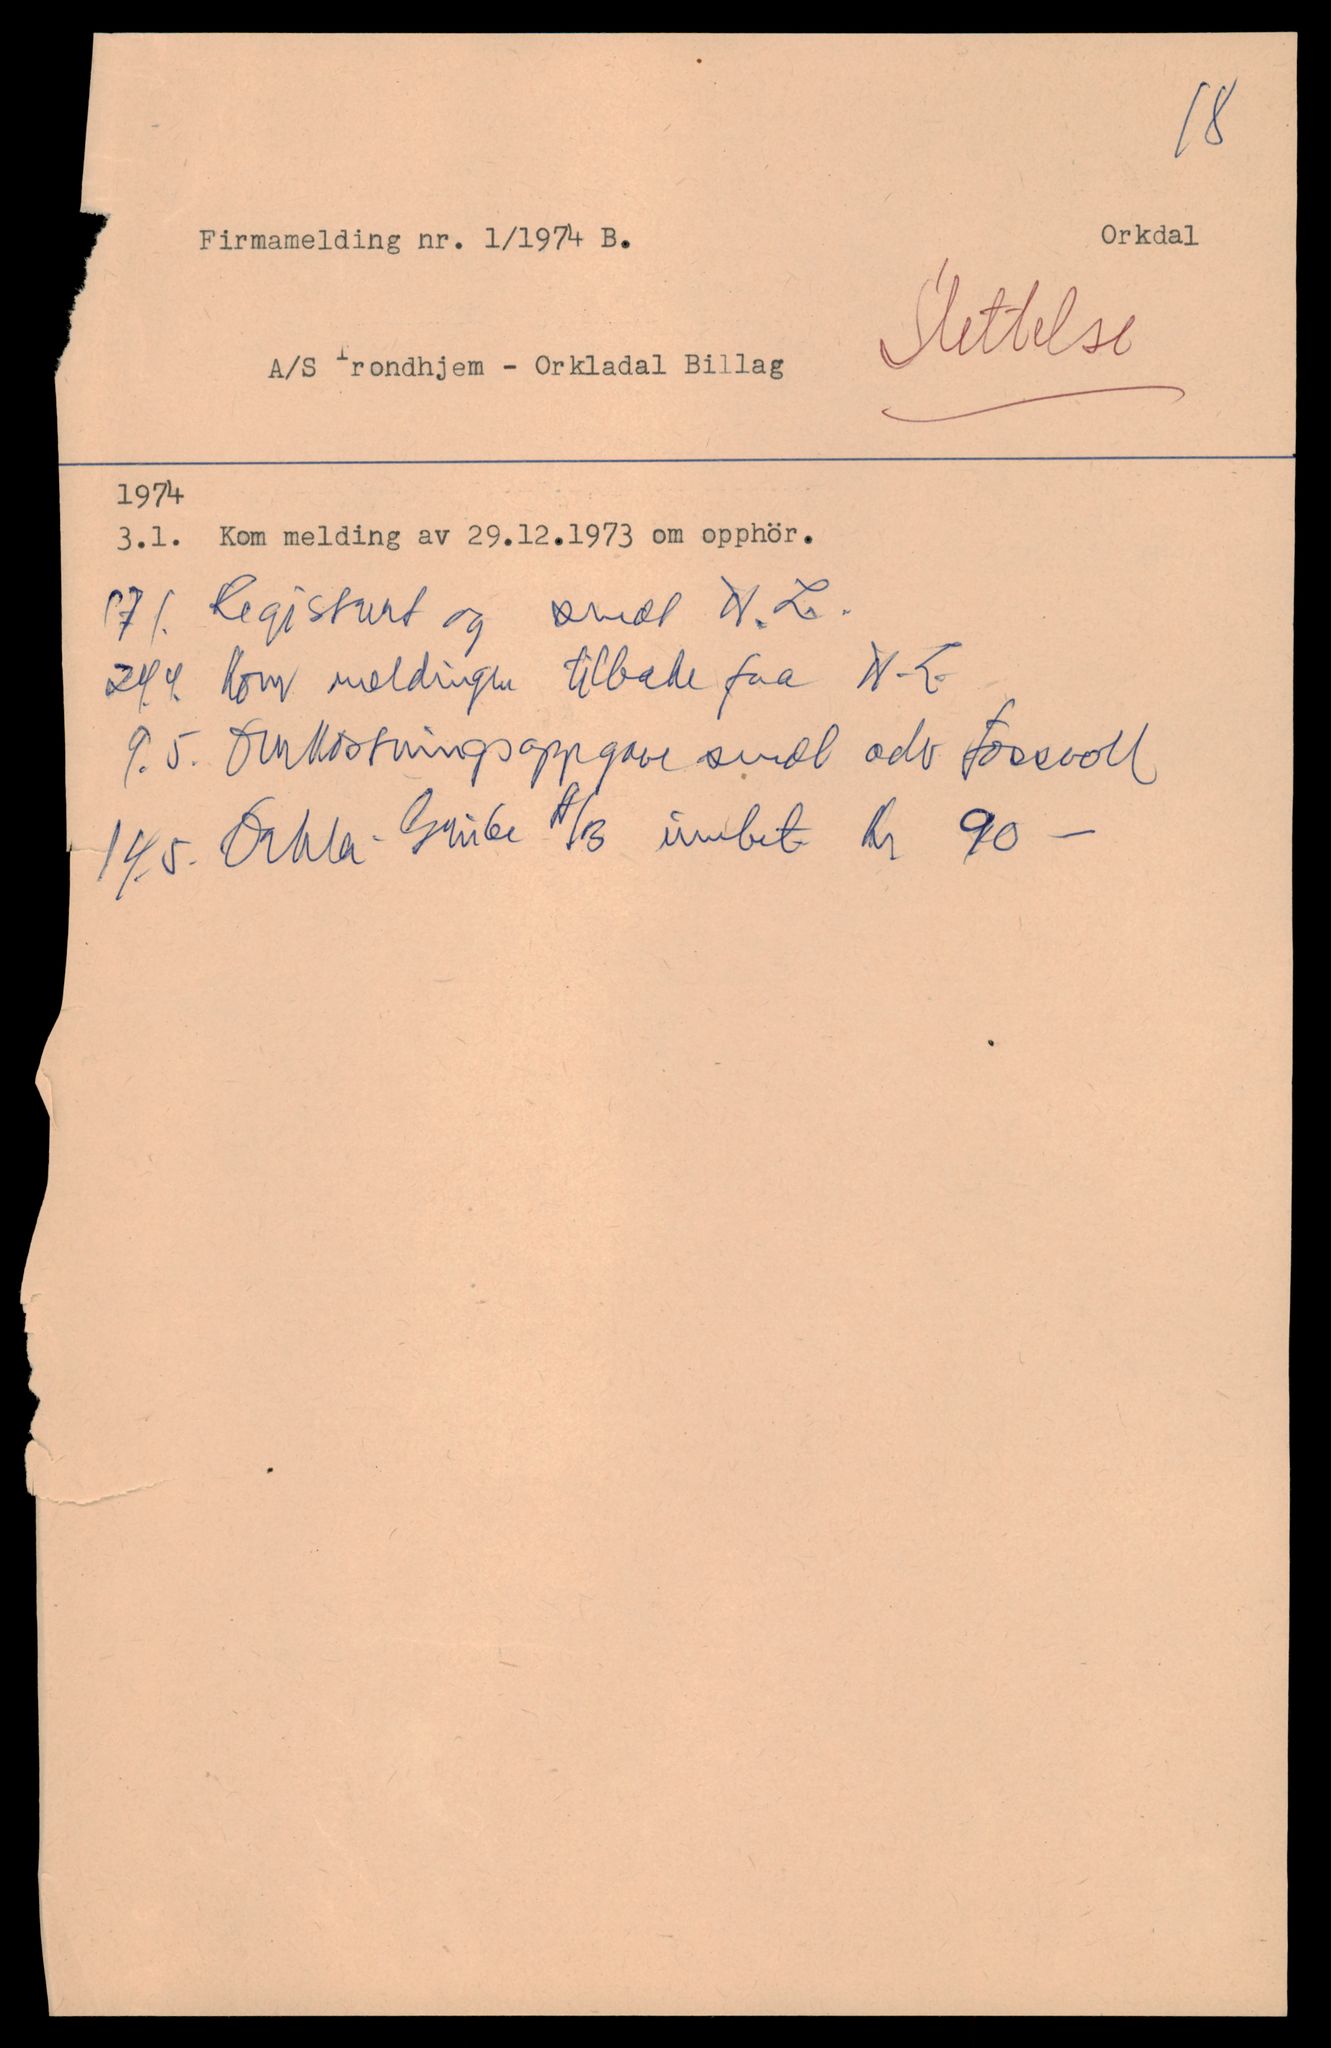 18
Firmamelding nr. 1/1974 B. Orkdal
Slettelse
A/S Trondhjem - Orkladal Billag
1974
3.1. Kom melding av 29.12.1973 om opphör.
17/1. Registrert og sendt N.L.
24.4. Kom meldingen tilbake fra N.L.
9.5. Omkostningsoppgave sendt adv Fossvoll
14.5. Orkla-Grube A/B innbet. kr 90 —